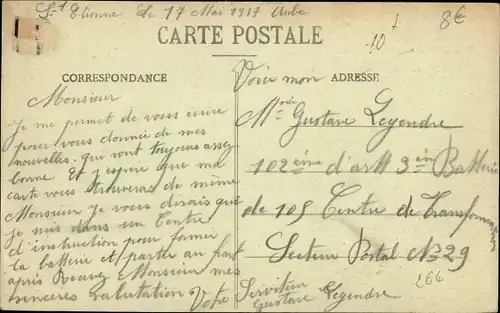 St Etienne Le 17 Mai 1917 Aube
8€
10
CARTE POSTALE
CORRESPONDANCE
ADRESSE
Monsieur
Je me permet de vous ecrire
pour vous donnée de mes
nouvelles. qui sont toujours assez
bonne Et j'espere que ma
carte vous trouveras de même
Monsieur je vous dirais que
je suis dans un Centre
d'instruction pour former
la batterie et partir au front
après Recevez Monsieur mes
sinceres Salutation Votre Serviteur
Gustave Legendre
Voici mon
Gustave Legendre
102eme d'art 3em Batterie
de 105 Centre de Transformation
Secteur Postal N°29
266